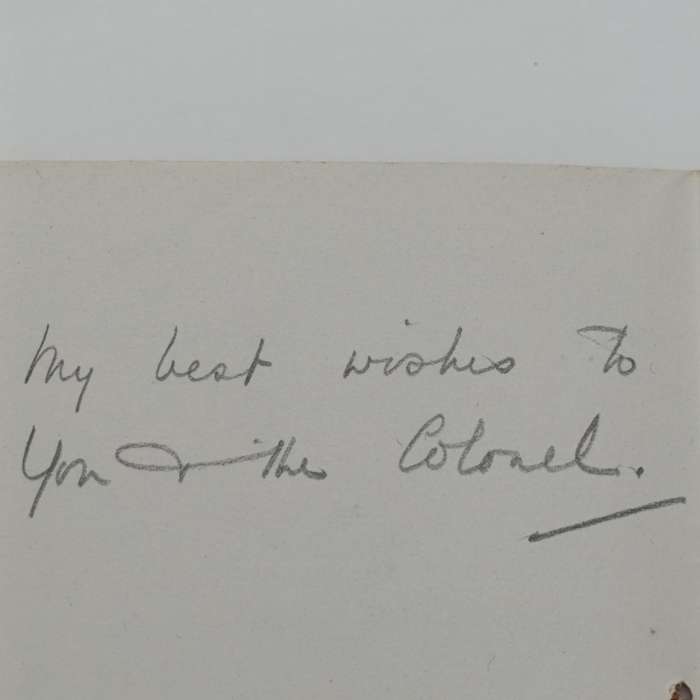 My best wishes to
You & the Colonel.